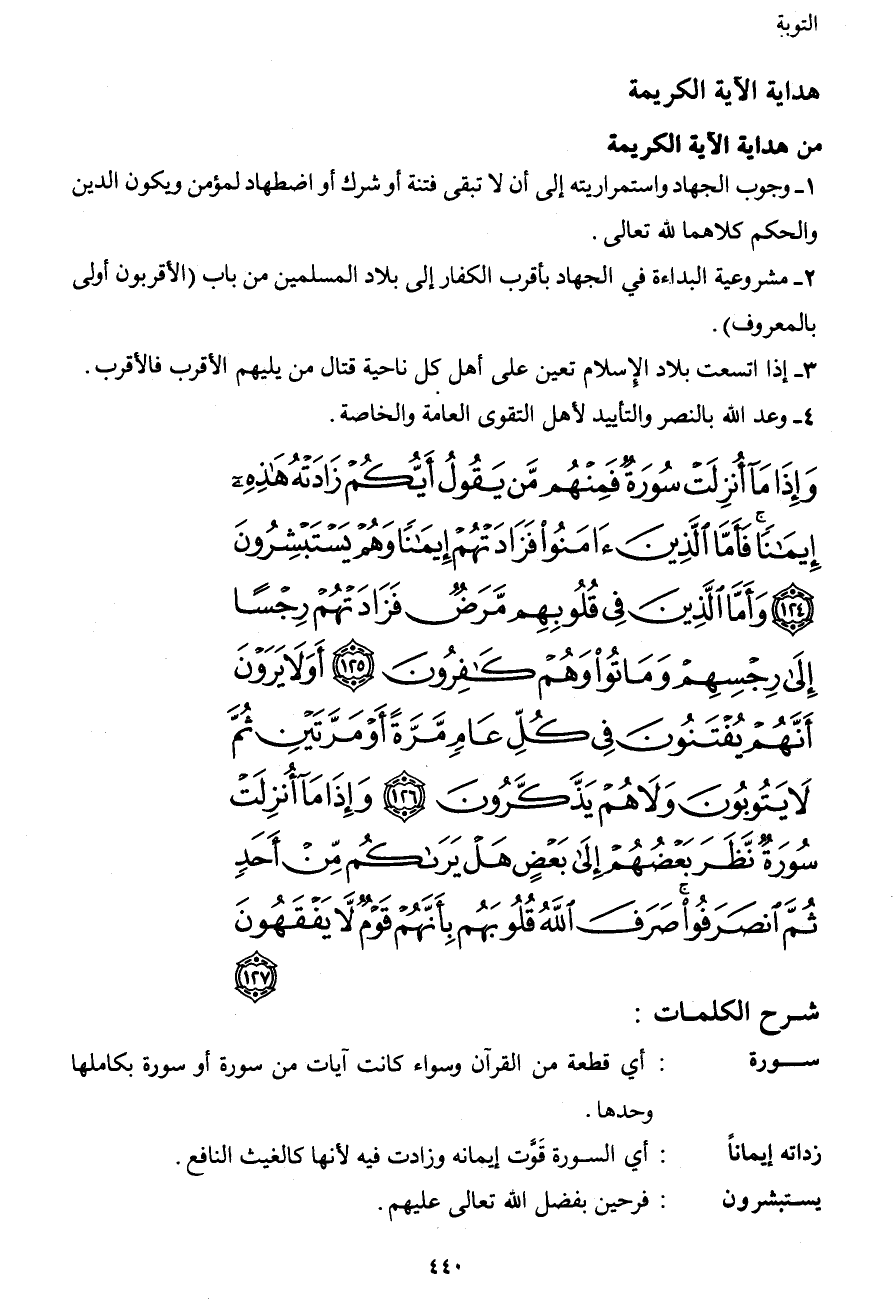 التوبة
هداية الآية الكريمة
من هداية الآية الكريمة
١ـ وجوب الجهاد واستمراريته إلى أن لا تبقى فتنة أو شرك أو اضطهاد لمؤمن ويكون الدين
والحكم كلاهما لله تعالى .
٢ـ مشروعية البداءة في الجهاد بأقرب الكفار إلى بلاد المسلمين من باب (الأقربون أولى
بالمعروف) .
٣ـ إذا اتسعت بلاد الإسلام تعين على أهل كل ناحية قتال من يليهم الأقرب فالأقرب .
٤ـ وعد الله بالنصر والتأييد لأهل التقوى العامة والخاصة .
وَإِذَا مَآ أُنزِلَتْ سُورَةٌ فَمِنْهُم مَّن يَقُولُ أَيُّكُمْ زَادَتْهُ هَٰذِهِۦٓ
إِيمَٰنًا ۚ فَأَمَّا ٱلَّذِينَ ءَامَنُوا۟ فَزَادَتْهُمْ إِيمَٰنًا وَهُمْ يَسْتَبْشِرُونَ
١٢٤ وَأَمَّا ٱلَّذِينَ فِى قُلُوبِهِم مَّرَضٌ فَزَادَتْهُمْ رِجْسًا
إِلَىٰ رِجْسِهِمْ وَمَاتُوا۟ وَهُمْ كَٰفِرُونَ ١٢٥ أَوَلَا يَرَوْنَ
أَنَّهُمْ يُفْتَنُونَ فِى كُلِّ عَامٍ مَّرَّةً أَوْ مَرَّتَيْنِ ثُمَّ
لَا يَتُوبُونَ وَلَا هُمْ يَذَّكَّرُونَ ١٢٦ وَإِذَا مَآ أُنزِلَتْ
سُورَةٌ نَّظَرَ بَعْضُهُمْ إِلَىٰ بَعْضٍ هَلْ يَرَىٰكُم مِّنْ أَحَدٍ
ثُمَّ ٱنصَرَفُوا۟ ۚ صَرَفَ ٱللَّهُ قُلُوبَهُم بِأَنَّهُمْ قَوْمٌ لَّا يَفْقَهُونَ
١٢٧
شـرح الكلمـات :
ســـورة : أي قطعة من القرآن وسواء كانت آيات من سورة أو سورة بكاملها
وحدها .
زداته إيماناً : أي السـورة قَوَّت إيمانه وزادت فيه لأنها كالغيث النافع .
يستبشرون : فرحين بفضل الله تعالى عليهم .
٤٤٠